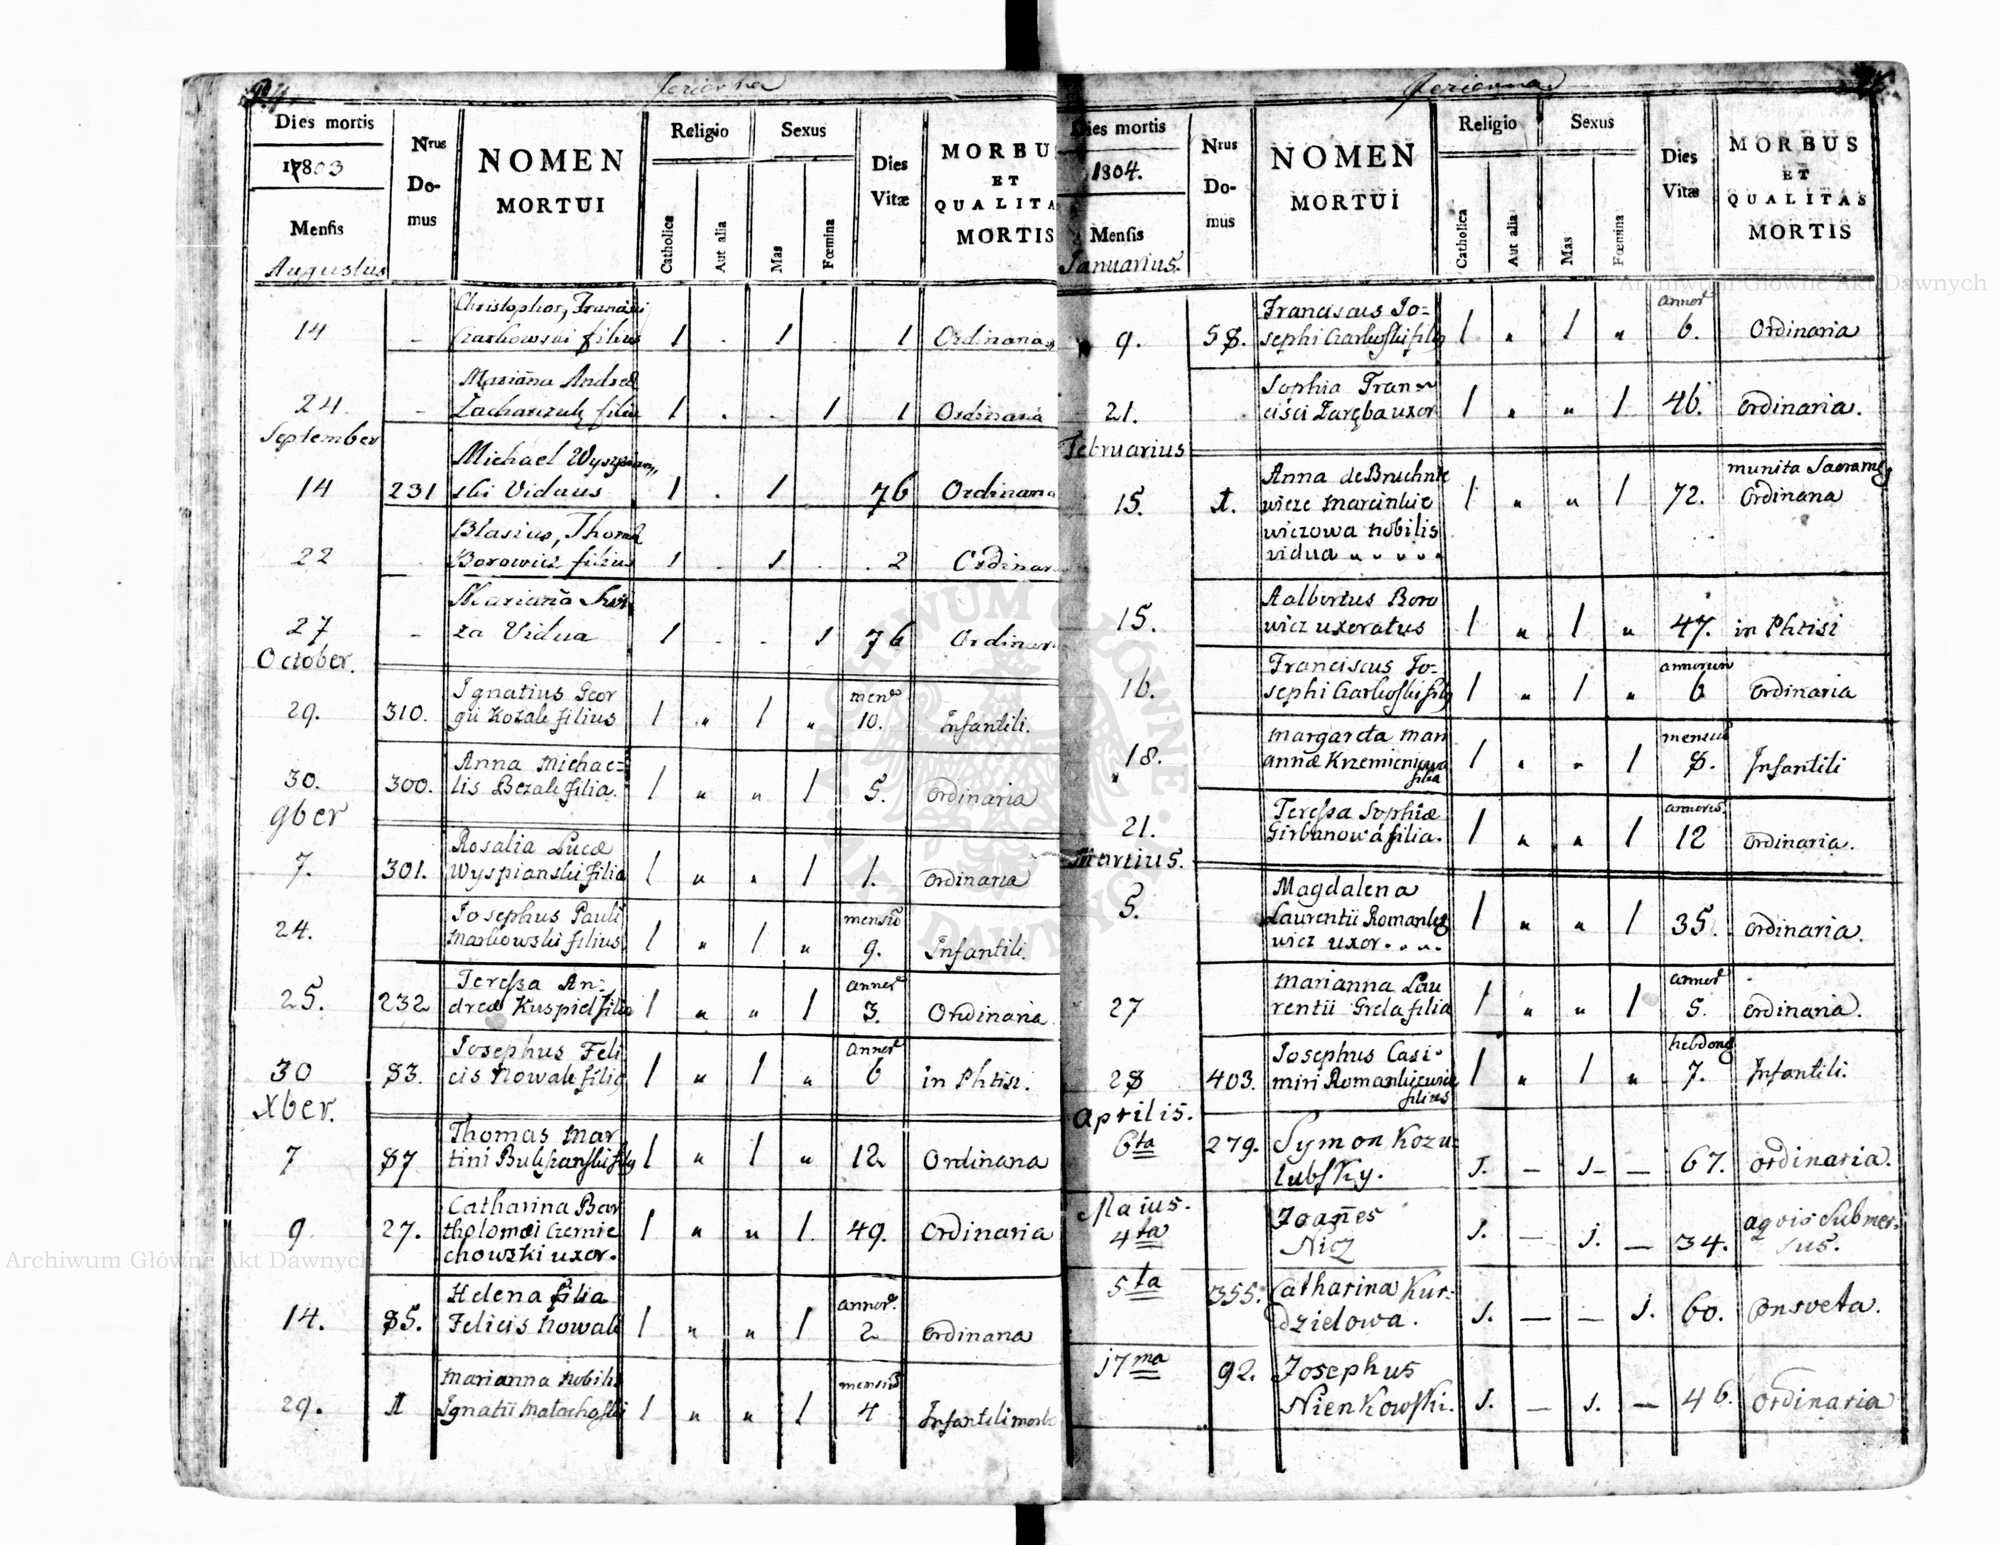 94
Jezierna
Dies mortis
1803
Mensis
Augustus
Nrus
Do-
mus
NOMEN
MORTUI
Religio
Catholica
Aut alia
Sexus
Mas
Fœmina
Dies
Vitæ
MORBU
ET
QUALITA
MORTIS
14 - Christophor, Francisci
Czarkowski filius 1 . 1 . 1 Ordinaria
24 - Marianna Andreæ
Zacharczuk filia 1 . . 1 1 Ordinaria
September
14 231 Michael Wyspian
ski Viduus 1 . 1 76 Ordinaria
22 Blasius, Thomæ
Borowicz filius 1 . 1 . 2 Ordinar
27 - Marianna
za Vidua 1 . . 1 76 Ordinar
October.
29. 310. Ignatius Geor
gii Kozak filius 1 " 1 " mens 10. Infantili.
30. 300. Anna Michae=
lis Bezak filia. 1 " " 1 5. ordinaria
9ber
7. 301. Rosalia Lucæ
Wyspianski filia 1 " " 1 1. ordinaria
24. Josephus Pauli
Markowski filius 1 " 1 " mensiu 9. Infantili.
25. 232 Teressa An=
dreæ Kuspiel filia 1 " " 1 annor 3. Ordinaria
30 83. Josephus Feli
cis Nowak filig 1 " 1 " annor 6 in Phtisi.
Xber.
7 87 Thomas Mar
tini Bukszanski filg 1 " 1 " 12 Ordinaria
9 27. Catharina Bar
tholomæi Czernie
chowski uxor. 1 " " 1. 49. ordinaria
14. 85. Helena filia
Felicis Nowak 1 " " 1 annor. 2 ordinaria
29. 1 Marianna Nobilis
Ignatii Małachoski 1 " " 1 mensiu 4 Infantili morbo
Jezierna
Dies mortis
1804.
Mensis
Januarius.
Nrus
Do-
mus
NOMEN
MORTUI
Religio
Catholica
Aut alia
Sexus
Mas
Fœmina
Dies
Vitæ
MORBUS
ET
QUALITAS
MORTIS
9. 58. Franciscus Jo=
sephi Czarkoski filg 1 " 1 " annor 6. Ordinaria
21. Sophia Fran=
cisci Zaręba uxor 1 " " 1 46. ordinaria.
Februarius
15. 1. Anna de Bruchnie
wicze Marcinkie
wiczowa nobilis
vidua " " " " " 1 " " 1 72. munita Sacramg
Ordinaria
15. Aalbertus Boro
wicz uxoratus 1 " 1 " 47. in Phtisi
16. Franciscus Jo=
sephi Czarkoski filg 1 " 1 " annorum 6 ordinaria
18. Margareta Mari
annæ Krzemieniowa
filia 1 " " 1 mensiu 8. Infantili
21. Teressa Sophiæ
Girbanowa filia. 1 " " 1 annoru. 12 ordinaria.
Martius.
5. Magdalena
Laurentii Romankg
wicz uxor. . . 1 " " 1 35. ordinaria.
27 Marianna Lau
rentii Grela filia 1 " " 1 annor 5. ordinaria.
28 403. Josephus Casi
miri Romankiewicz
filius 1 " 1 " hebdomg 7. Infantili.
Aprilis.
6ta 279. Symon Kozu=
lubsky. 1. — 1— — 67. ordinaria.
Maius.
4ta Joañes
Nicz 1. — 1. — 34. aqvis Submer-
sus.
5ta 355. Catharina Kur=
dzielowa. 1. — — 1. 60. Consveta.
17ma 92. Josephus
Nienkowski. 1. — 1. — 46. Ordinaria
Archiwum Główne Akt Dawnych
Archiwum Główne Akt Dawnych
ARCHIWUM GŁÓWNE AKT DAWNYCH